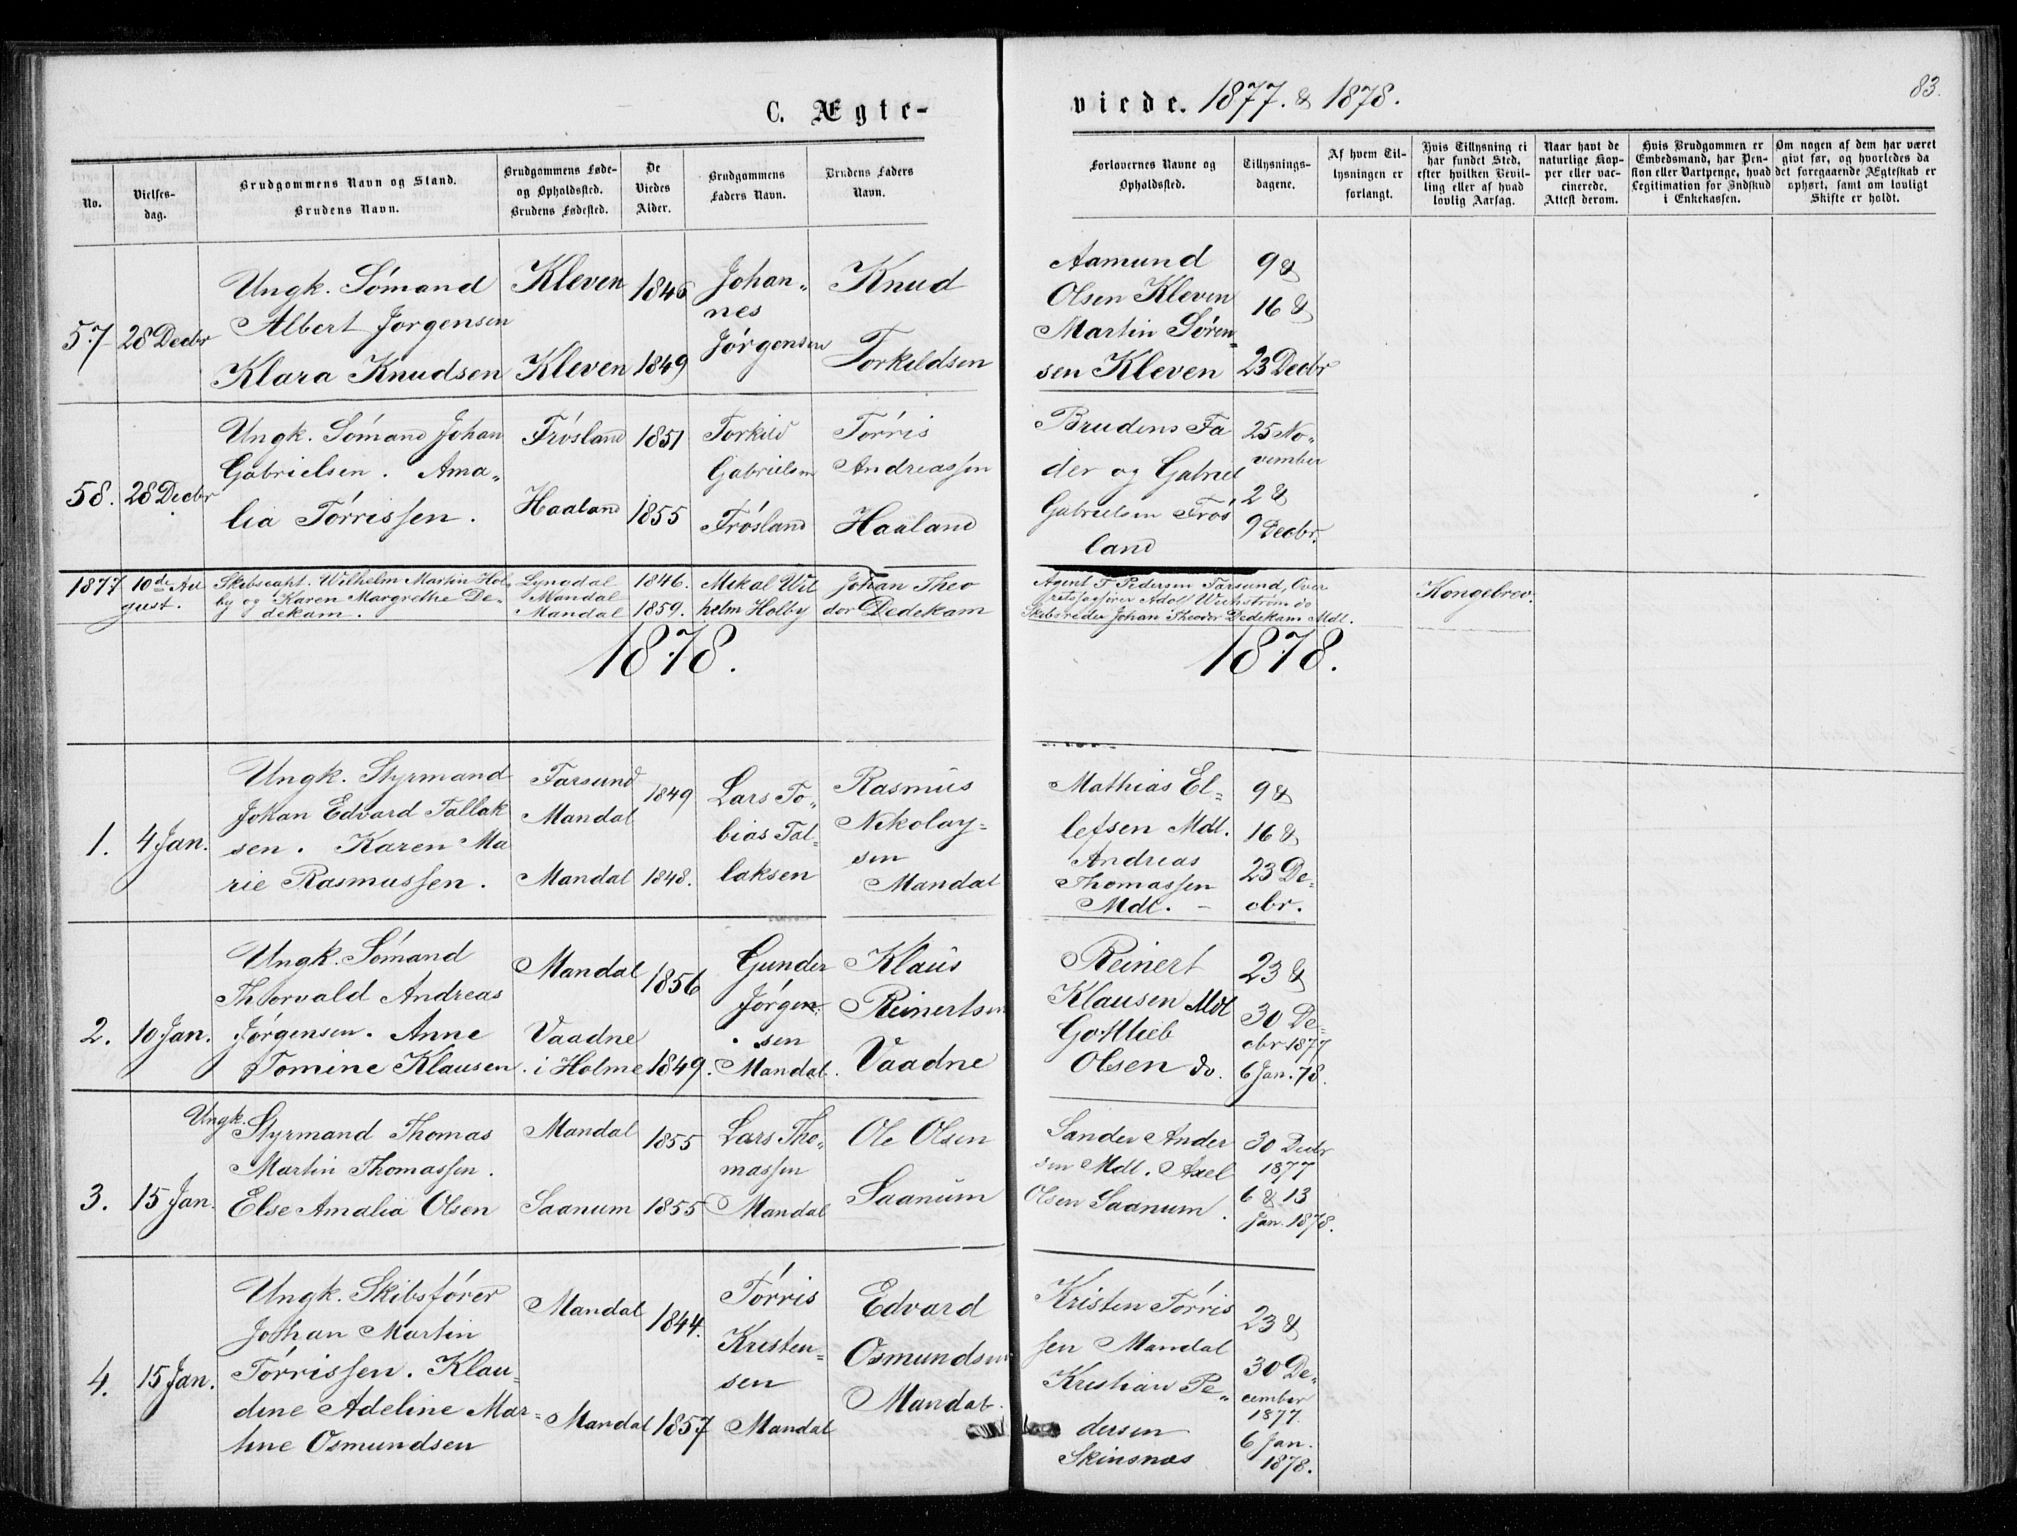 C. Ægte-
viede. 1877. & 1878.
83.
No.
Vielses-
dag.
Brudgommens Navn og Stand.
Brudens Navn.
Brudgommens Føde-
og Opholdssted.
Brudens Fødested.
De
Viedes
Alder.
Brudgommens
Faders Navn.
Brudens Faders
Navn.
Forlovernes Navne og
Opholdssted.
Tillysnings-
dagene.
Af hvem Til-
lysningen er
forlangt.
Hvis Tillysning ei
har fundet Sted,
efter hvilken Bevil-
ling eller af hvad
lovlig Aarsag.
Naar havt de
naturlige Kop-
per eller vac-
cinerede.
Attest derom.
Hvis Brudgommen er
Embedsmand, har Pen-
sion eller Vartpenge, hvad
Legitimation for Indskud
i Enkekassen.
Om nogen af dem har været
givt før, og hvorledes da
det foregaaende Ægteskab er
ophørt, samt om lovligt
Skifte er holdt.
57
28 Decbr
Ungk. Sómand
Albert Jorgensen
Klara Knudsen
Kleven
Kleven
1846
1849
Johan„
nes
Jórgensen
Knud
Torkildsen
Aamund
Olsen Kleven
Martin Sóren=
sen Kleven
9 &
16 &
23 Decbr
58.
28 Decbr
Ungk. Sómand Johan
Gabrielsen. Ama„
lia Tórrissen.
Frósland
Haaland
1851
1855
Torkild
Gabrielsen
Frósland
Tórris
Andreassen
Haaland
Brudens Fa
der og Gabriel
Gabrielsen Frós
land
25 No„
vember
2 &
9 Decbr.
1877
10de Au
gust.
Skibscapt. Wilhelm Martin Hol„
by og Karen Margrethe De„
dekam.
Lyngdal
Mandal
Mandal
1846.
1859.
Mikal Wil
helm Holby
Johan Theo
dor Dedekam
Agent F. Pedersen Farsund, Over
retssagfører Adolf do
Skibsreder Johan Theodor Dedekam Mdl.
Kongebrev.
1878.
1878.
1.
4 Jan.
Ungk. Styrmand
Johan Edvard Tallak
sen. Karen Ma
rie Rasmussen.
Farsund
Mandal
Mandal
1849
1848.
Lars To„
bias Tal=
laksen
Rasmus
Nikolay=
sen
Mandal
Mathias El=
lefsen Mdl.
Andreas
Thomassen
Mdl. –
9 &
16 &
23 De„
cbr.
2.
10 Jan.
Ungk. Sómand
Thorvald Andreas
Jórgensen. Anne
Tomine Klausen.
Mandal
Vaadne
i Holme
1856
1849.
Gunder
Jórgen„
sen
Mandal.
Klaus
Reinertsen
Vaadne
Reinert
Klausen Mdl
Gottlieb
Olsen do.
23 &
30 De=
cbr 1877
6 Jan. 78.
3.
15 Jan.
Ungk.
Styrmand Thomas
Martin Thomassen.
Else Amalia Olsen
Mandal
Saanum
1855
1855
Lars Tho„
massen
Mandal
Ole Olsen
Saanum
Sander Ander
sen Mdl. Axel
Olsen Saanum.
30 Decbr
1877
6 & 13
Jan. 1878.
4.
15 Jan.
Ungk. Skibsfórer
Johan Martin
Tórrissen. Klau=
dine Adeline Mar=
tine Osmundsen
Mandal
Mandal
1844.
1857
Tórris
Kristen=
sen
Mandal
Edvard
Osmundsen
Mandal.
Kristen Tórris
sen Mandal
Kristian Pe„
dersen
Skinsnæs
23 &
30 De„
cember
1877.
6 Jan.
1878.